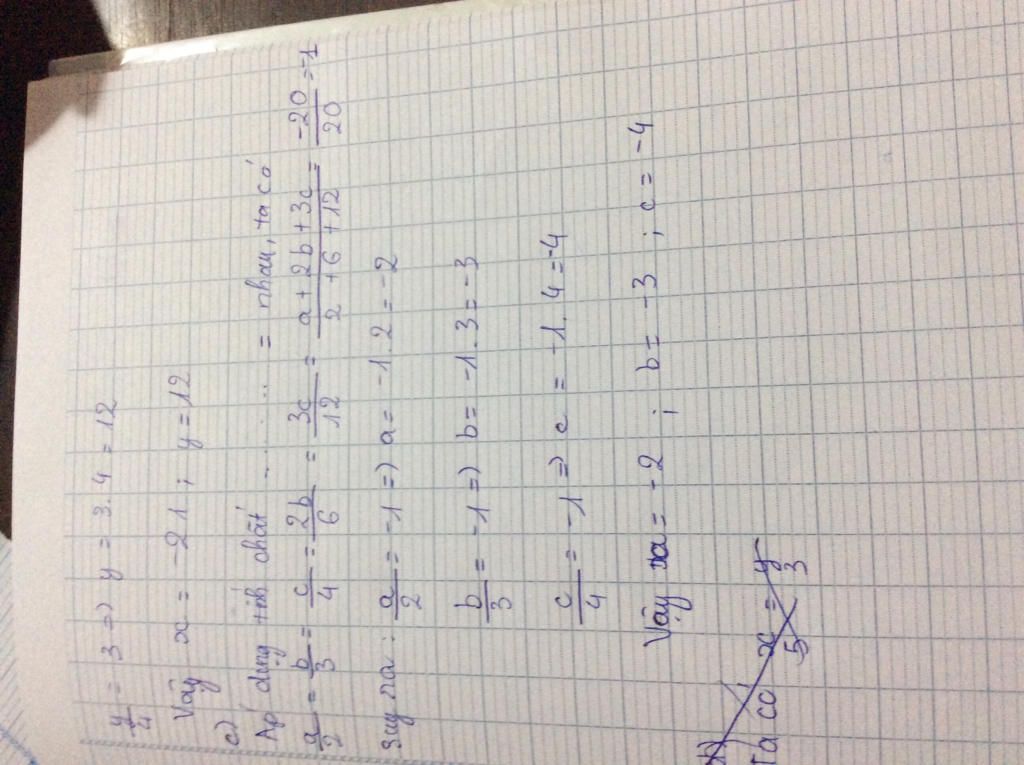 y/4 = 3 => y = 3.4 = 12
Vậy x = -21 ; y = 12
c)
Áp dụng tính chất ........... = nhau, ta có
a/2 = b/3 = c/4 = 2b/6 = 3c/12 = (a + 2b + 3c)/(2 + 6 + 12) = -20/20 = -1
suy ra : a/2 = -1 => a = -1.2 = -2
b/3 = -1 => b = -1.3 = -3
c/4 = -1 => c = -1.4 = -4
Vậy a = -2 ; b = -3 ; c = -4
d)
Ta có x/5 = y/3